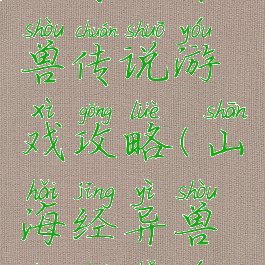 shòu chuán shuō yóu
兽传说游
xì gōng lüè shān
戏攻略(山
hǎi jīng yì shòu
海经异兽